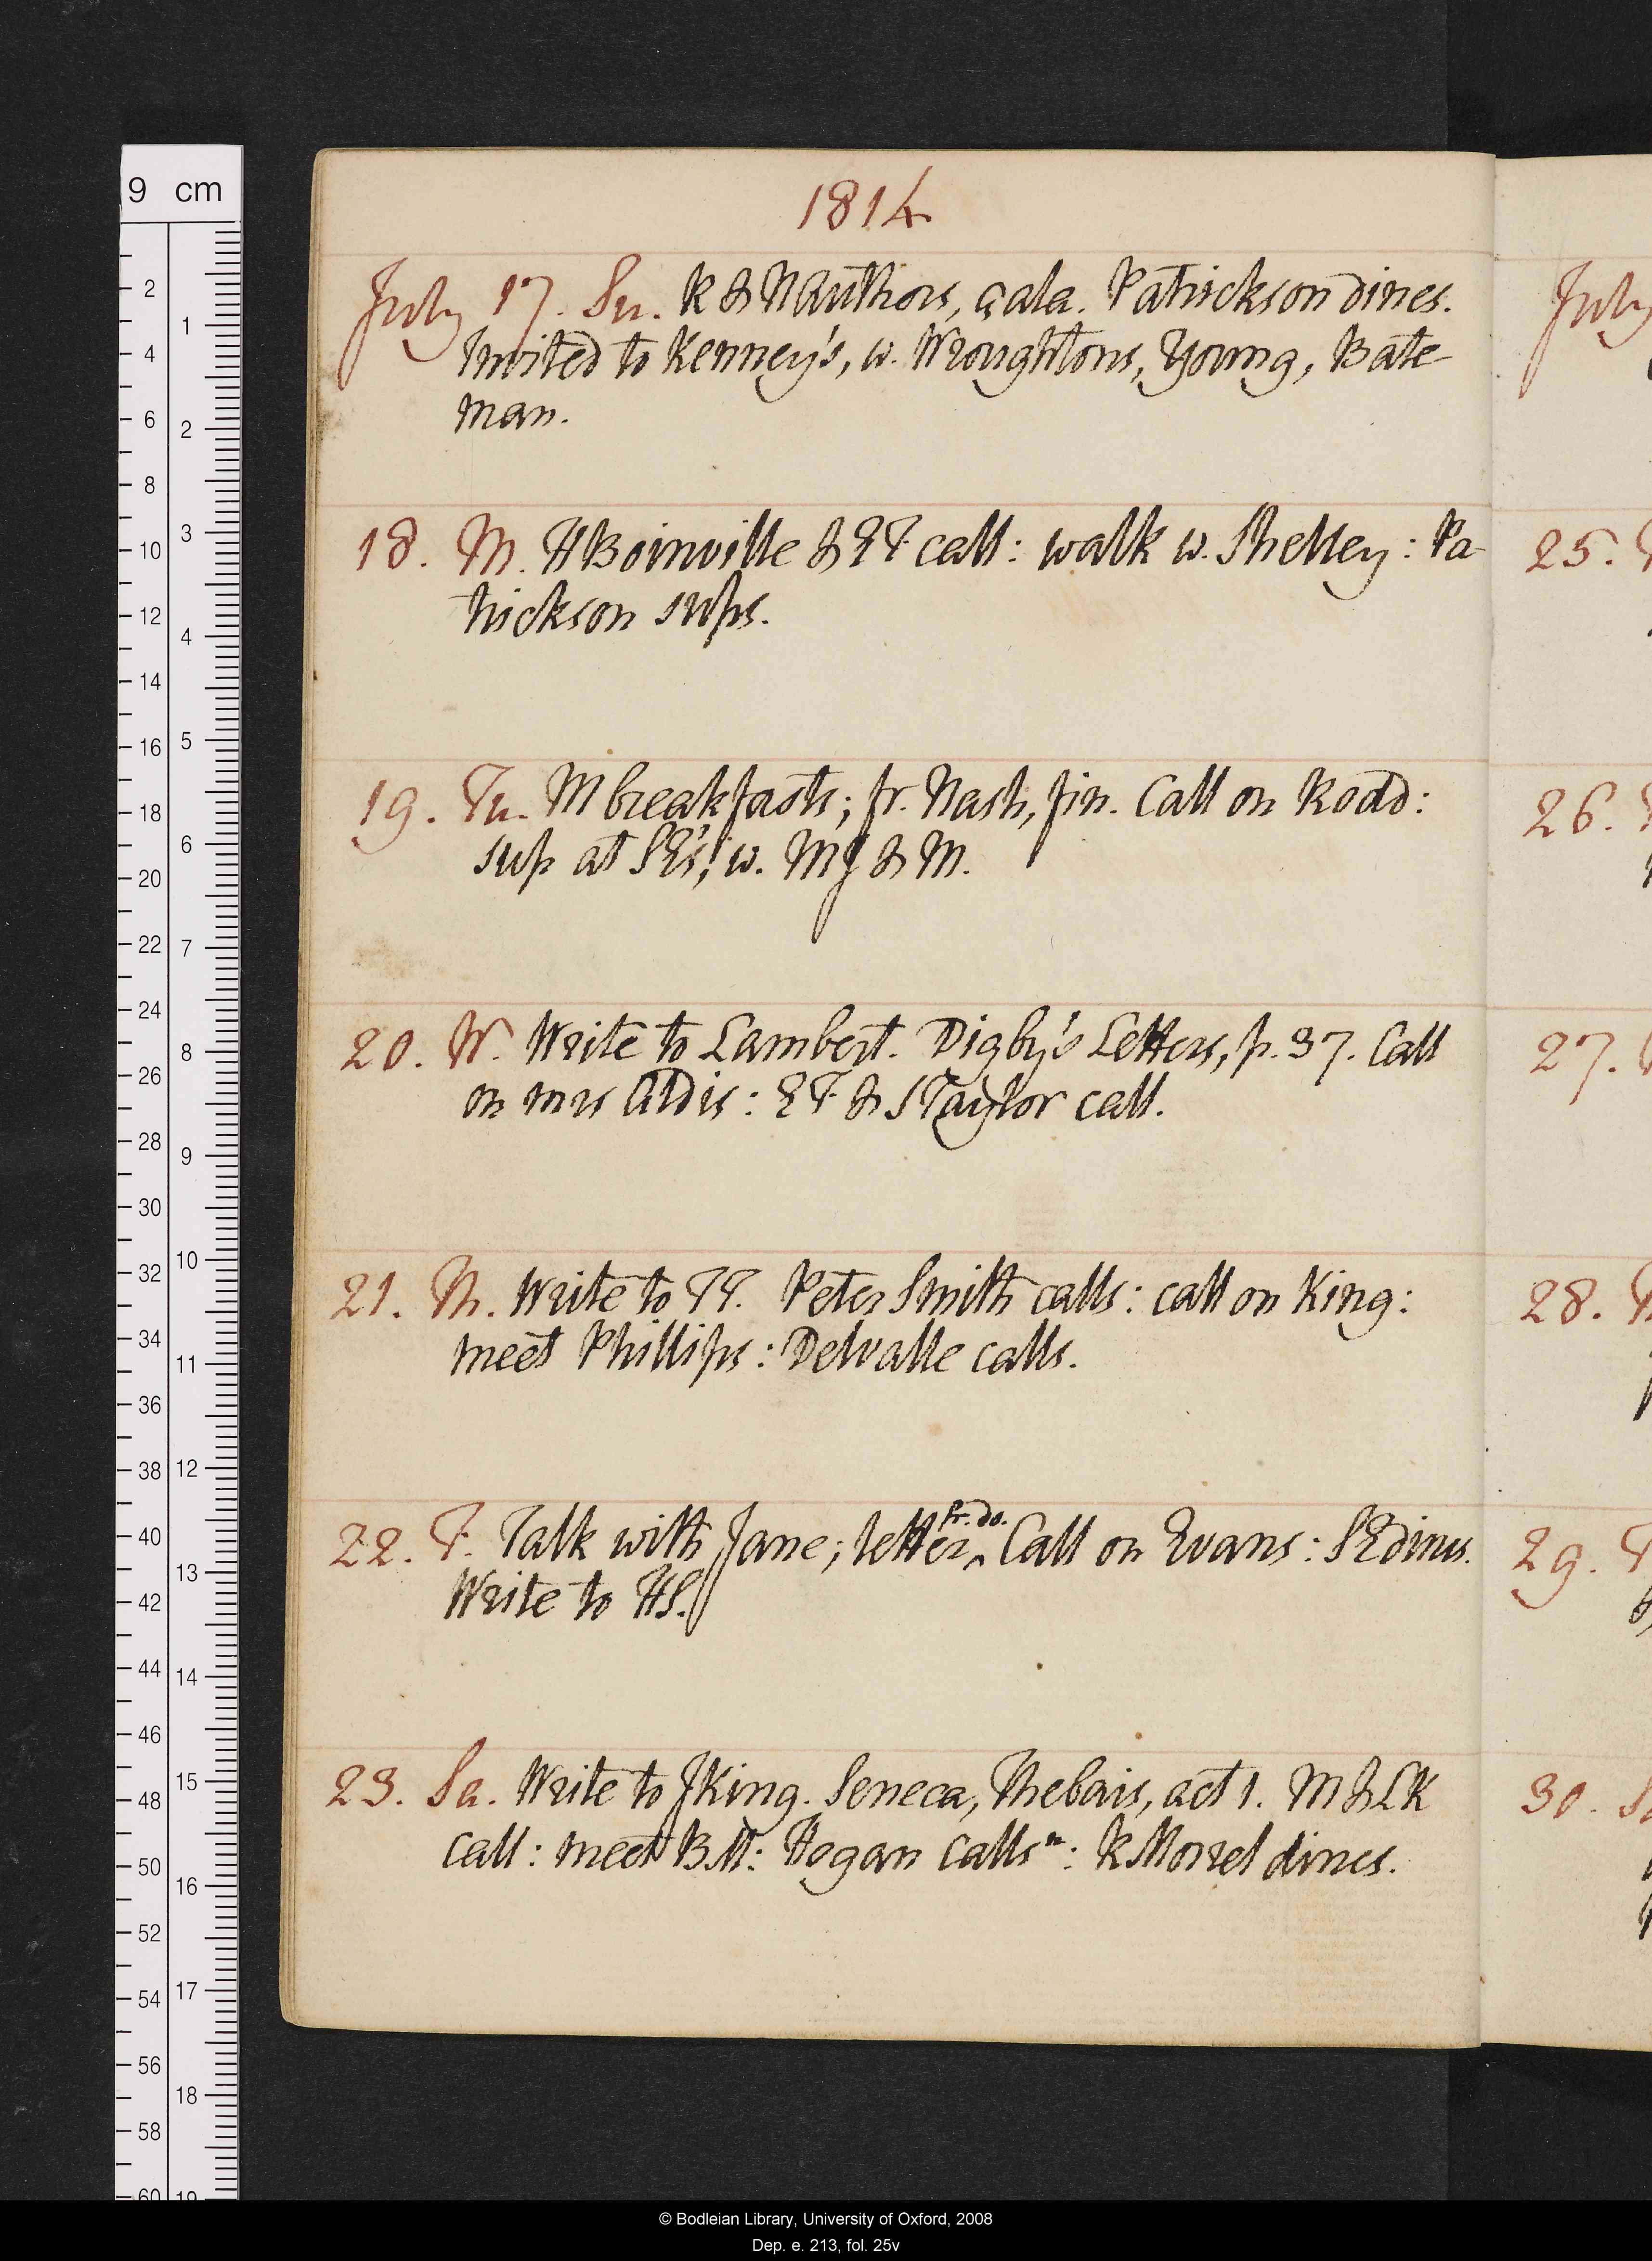 1814
July 17. Su. R & N Authors, çala. Patrickson dines.
Invited to Kenney's, w. Wroughtons, Young, Bate-
man.
18. M. H Boinville & ET call: walk w. Shelley: Pa-
trickson sups.
19. Tu. M breakfasts; fr. Nash, fin. Call on Rodd:
sup at SE's, w. MJ & M.
20. W. Write to Lambert. Digby's Letters, p. 37. Call
on mrs Aldis: ET & S Taylor call.
21. Th. Write to TT. Peter Smith calls: call on King:
meet Phillips: Delvalle calls.
22. F. Talk with Jane; letter ^fr. do. Call on Evans: SE dines.
Write to HS.
23. Sa. Write to J King. Seneca, Thebais, act 1. M & LK
call: meet BM: Hogan calls n: R Morrel dines.
July
25.
26.
27.
28.
29.
30.
9 cm
2
4
6
8
10
12
14
16
18
20
22
24
26
28
30
32
34
36
38
40
42
44
46
48
50
52
54
56
58
60
1
2
3
4
5
6
7
8
9
10
11
12
13
14
15
16
17
18
19
© Bodleian Library, University of Oxford, 2008
Dep. e. 213, fol. 25v